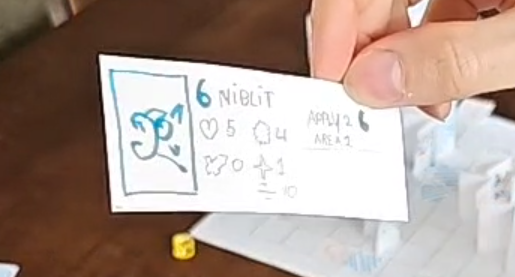 6 NiBLiT
5 4
0 1
= 10
APPLY 2 6
AREA 2